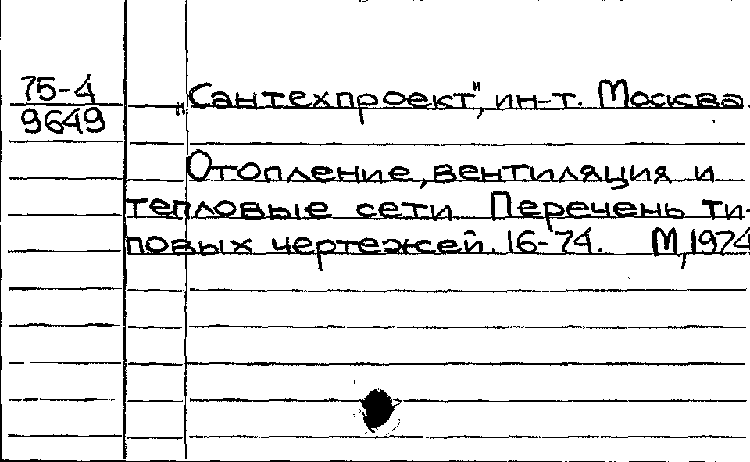 75-4
9649
„Сантехпроект", ин-т. Москва.
Отопление, вентиляция и
тепловые сети. Перечень ти-
повых чертежей. 16-74. М, 1974